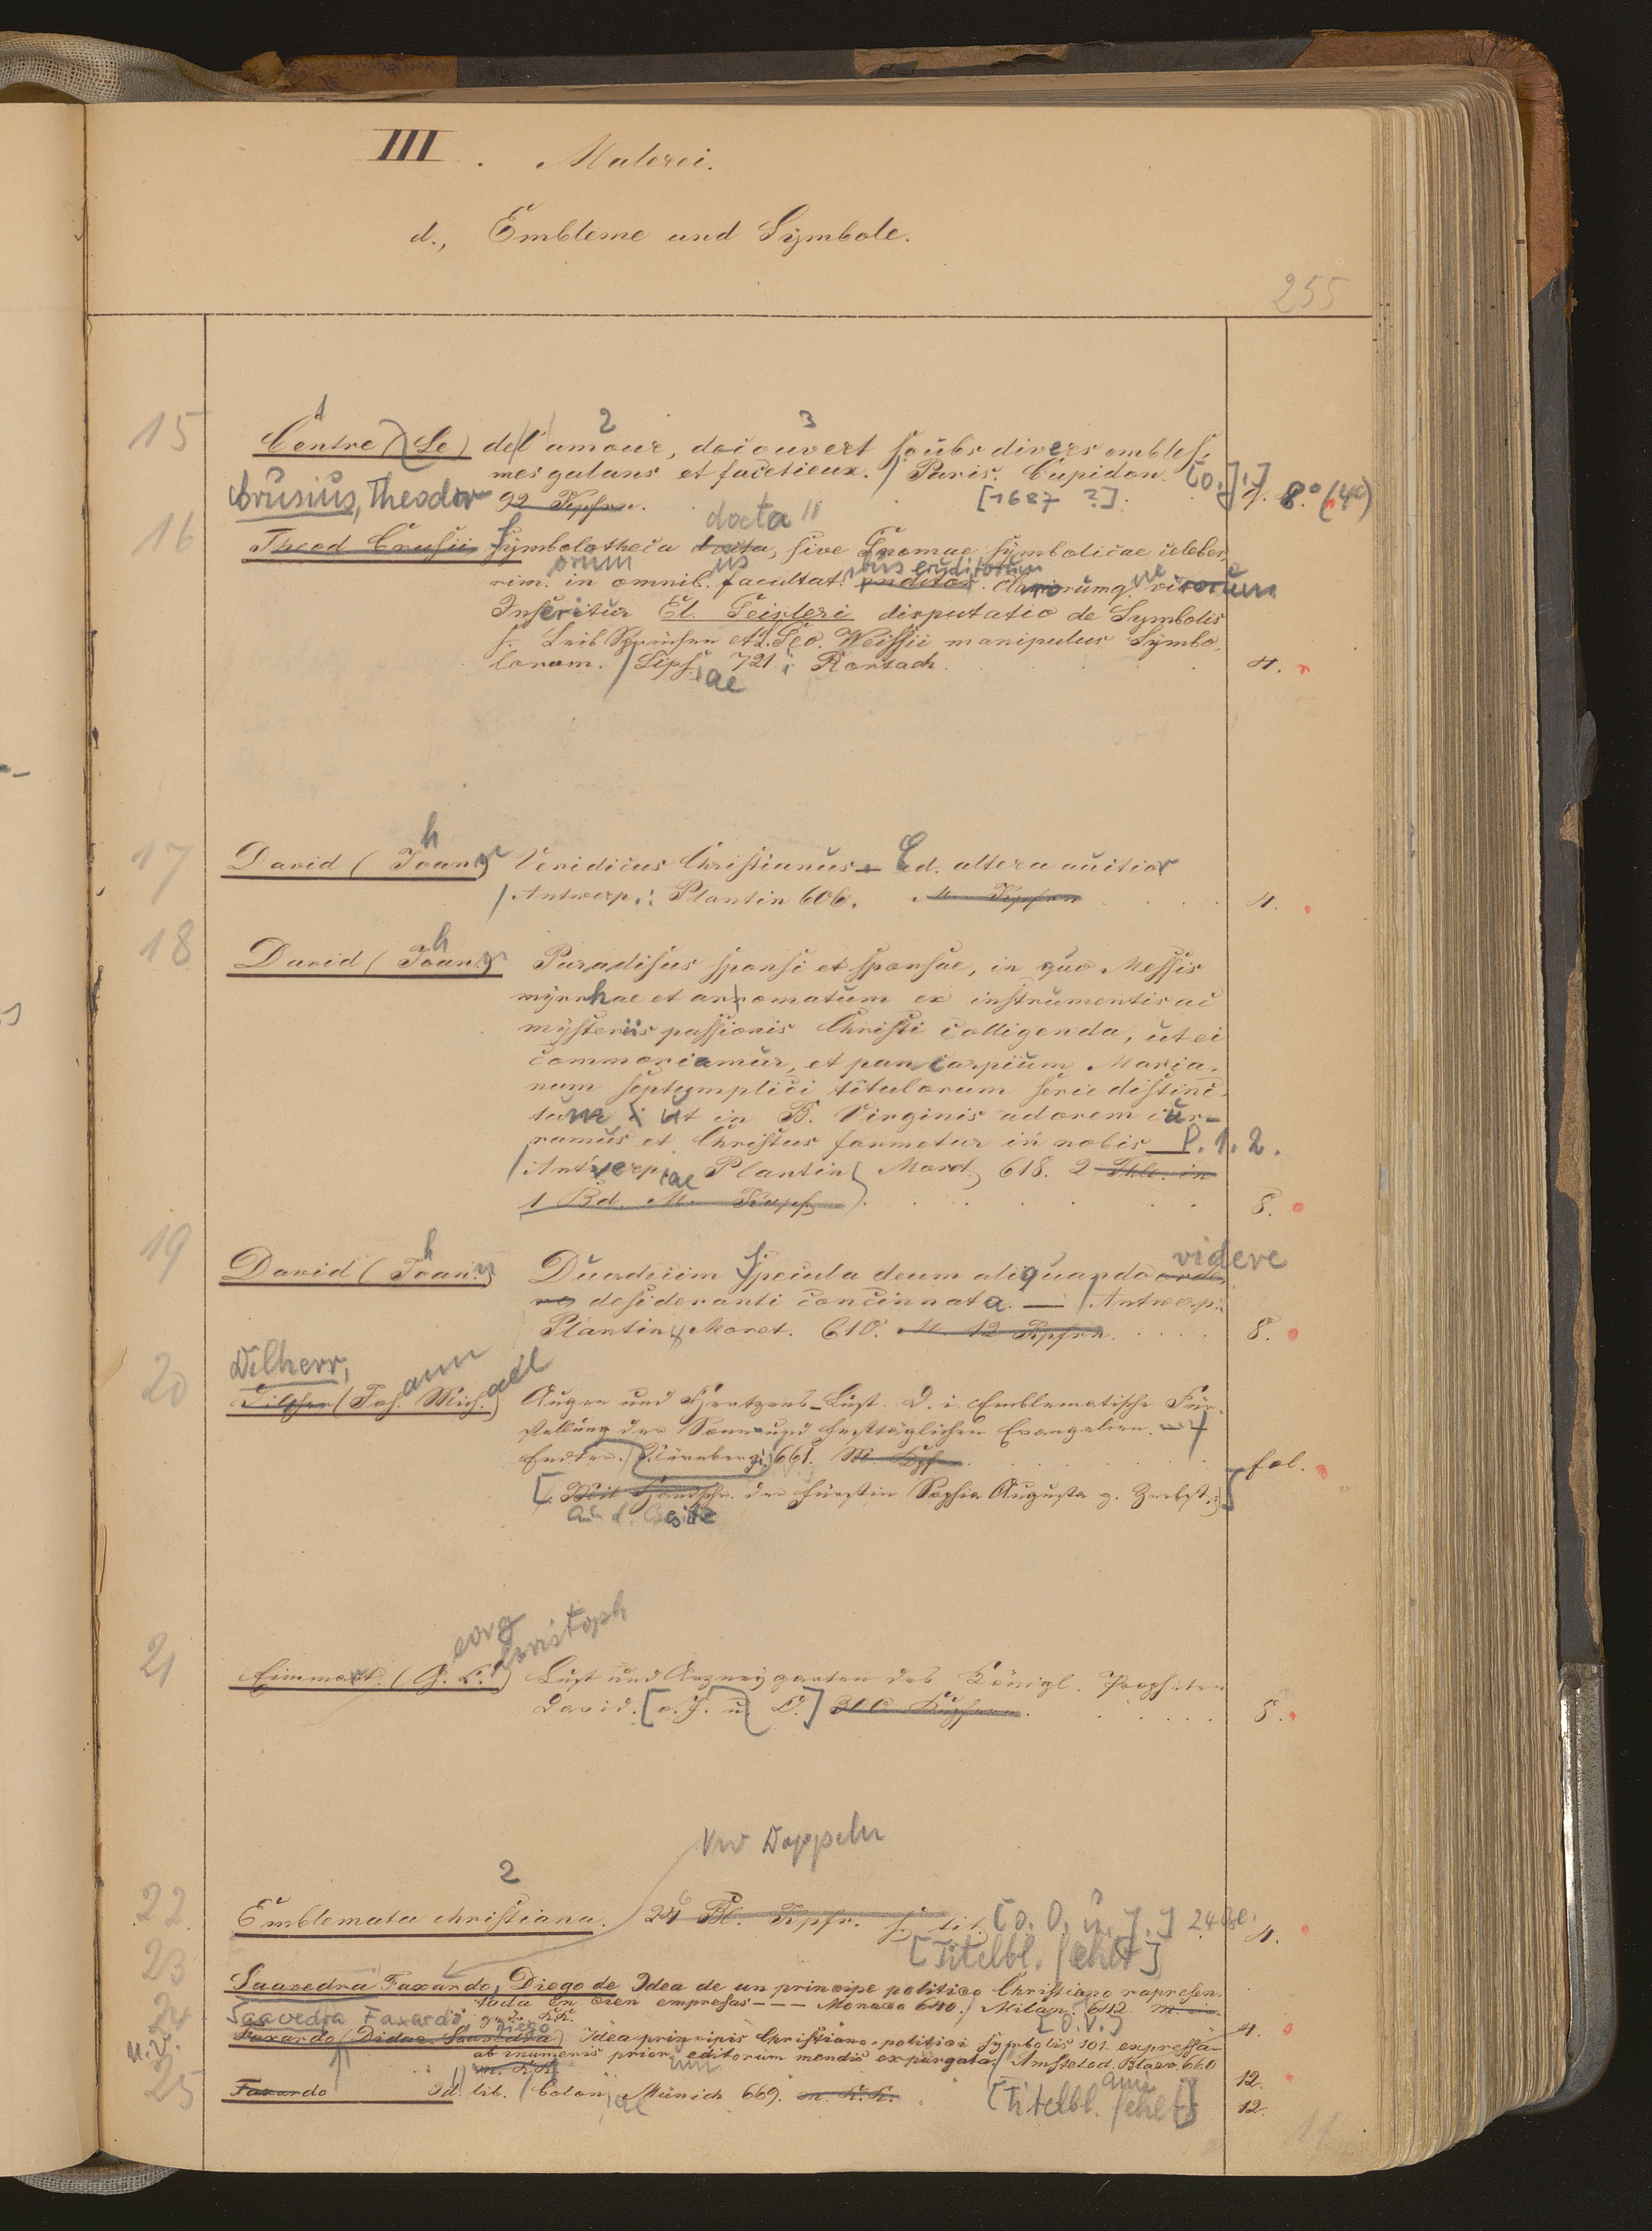 III. Malerei.
d., Embleme und Symbole.
255
1 2 3
15 Centre (Le) de l'amour, decouvert soubs divers embles-
mes galans et facetieux. / Paris. Cupidon. [o. J.]
Crusius, Theodor 92 Kpfrn. [1687 ?]. q. 8.° (4°)
docta
16 Theod Crusii Symbolotheca docta, sive Gnomae symbolicae celeber
orum us bus eruditorum
rim. in omnib. facultat. eruditor. clarorumq. ue virorum
Inseritur El. Geisleri disputatio de Symbolis
s. Leib Sprüchen et Geo. Weissii manipulus Symbo-
lorum. / Lips. iae 721. Rorsach. 4.
h
17 David (Joann) Veridicus Christianus – Ed. altera auctior
/ Antwerp.: Plantin 606. M. Kpfrn 4.
h
18 David (Joann) Paradisus sponsi et sponsae, in quo Messis
myrrhae et arromatum ex instrumentis ac
mysteriis passionis Christi colligenda, ut ei
commoriamur, et pancarpium Maria-
num septemplici titulorum serie distinc-
tum; ut in B. Virginis adorem cur-
ramus et Christus formetur in nobis P. 1. 2.
/ Antverp. iae Plantin Moret, 618. 2 Thle. in
1 Bd. M. Kupf. 8.
h
videre
19 David (Joann) Duodecim Specula deum aliquando orde
re desideranti concinnata. — / Antwerp.:
Plantin Moret. 610. M. 12 Kpfrn. 8.
Dilherr, ann ael
20 (Joh. Mich.) Augen und Hertzens-Lust. D. i. Emblematische Für-
stellung der Sonn- und Festtäglichen Evangelien.
Endter. Nürnberg. 661. M. Kpfr. fol.
[Mit Handschr. der Fürstin Sophia Augusta z. Zerbst.]
eorg hristoph
21 Eimmart. (G. C.) Lust und Arzneygarten des Königl. Propheten
David. [o. J. u. O.] 310 Kupfern. 8.
Vw Doppeln
2
22 Emblemata christiana. 24 Bl. Kpfr. s. tit. [o. O. u. J.] 24 Bl. 4.
[Titelbl. fehlt]
23 Saavedra Faxardo, Diego de Idea de un principe politico Christiano rapresen-
tada en cien empresas --- Monaco 640. / Milan. 642.
24 Saavedra Faxardo, Diego [o. V.] 4.
Faxardo (Didac. Saavedra) Idea principis Christiano-politici Symbolis 101. expressa
u. V. ab inumeris prior. editorum mendis expurgata / Amstelod. Blaev. 660
m. K.K. 12.
25 Faxardo Id. lib. / Colon. iae Münich 669. m. K.K. [Titelbl. fehlt] 12.